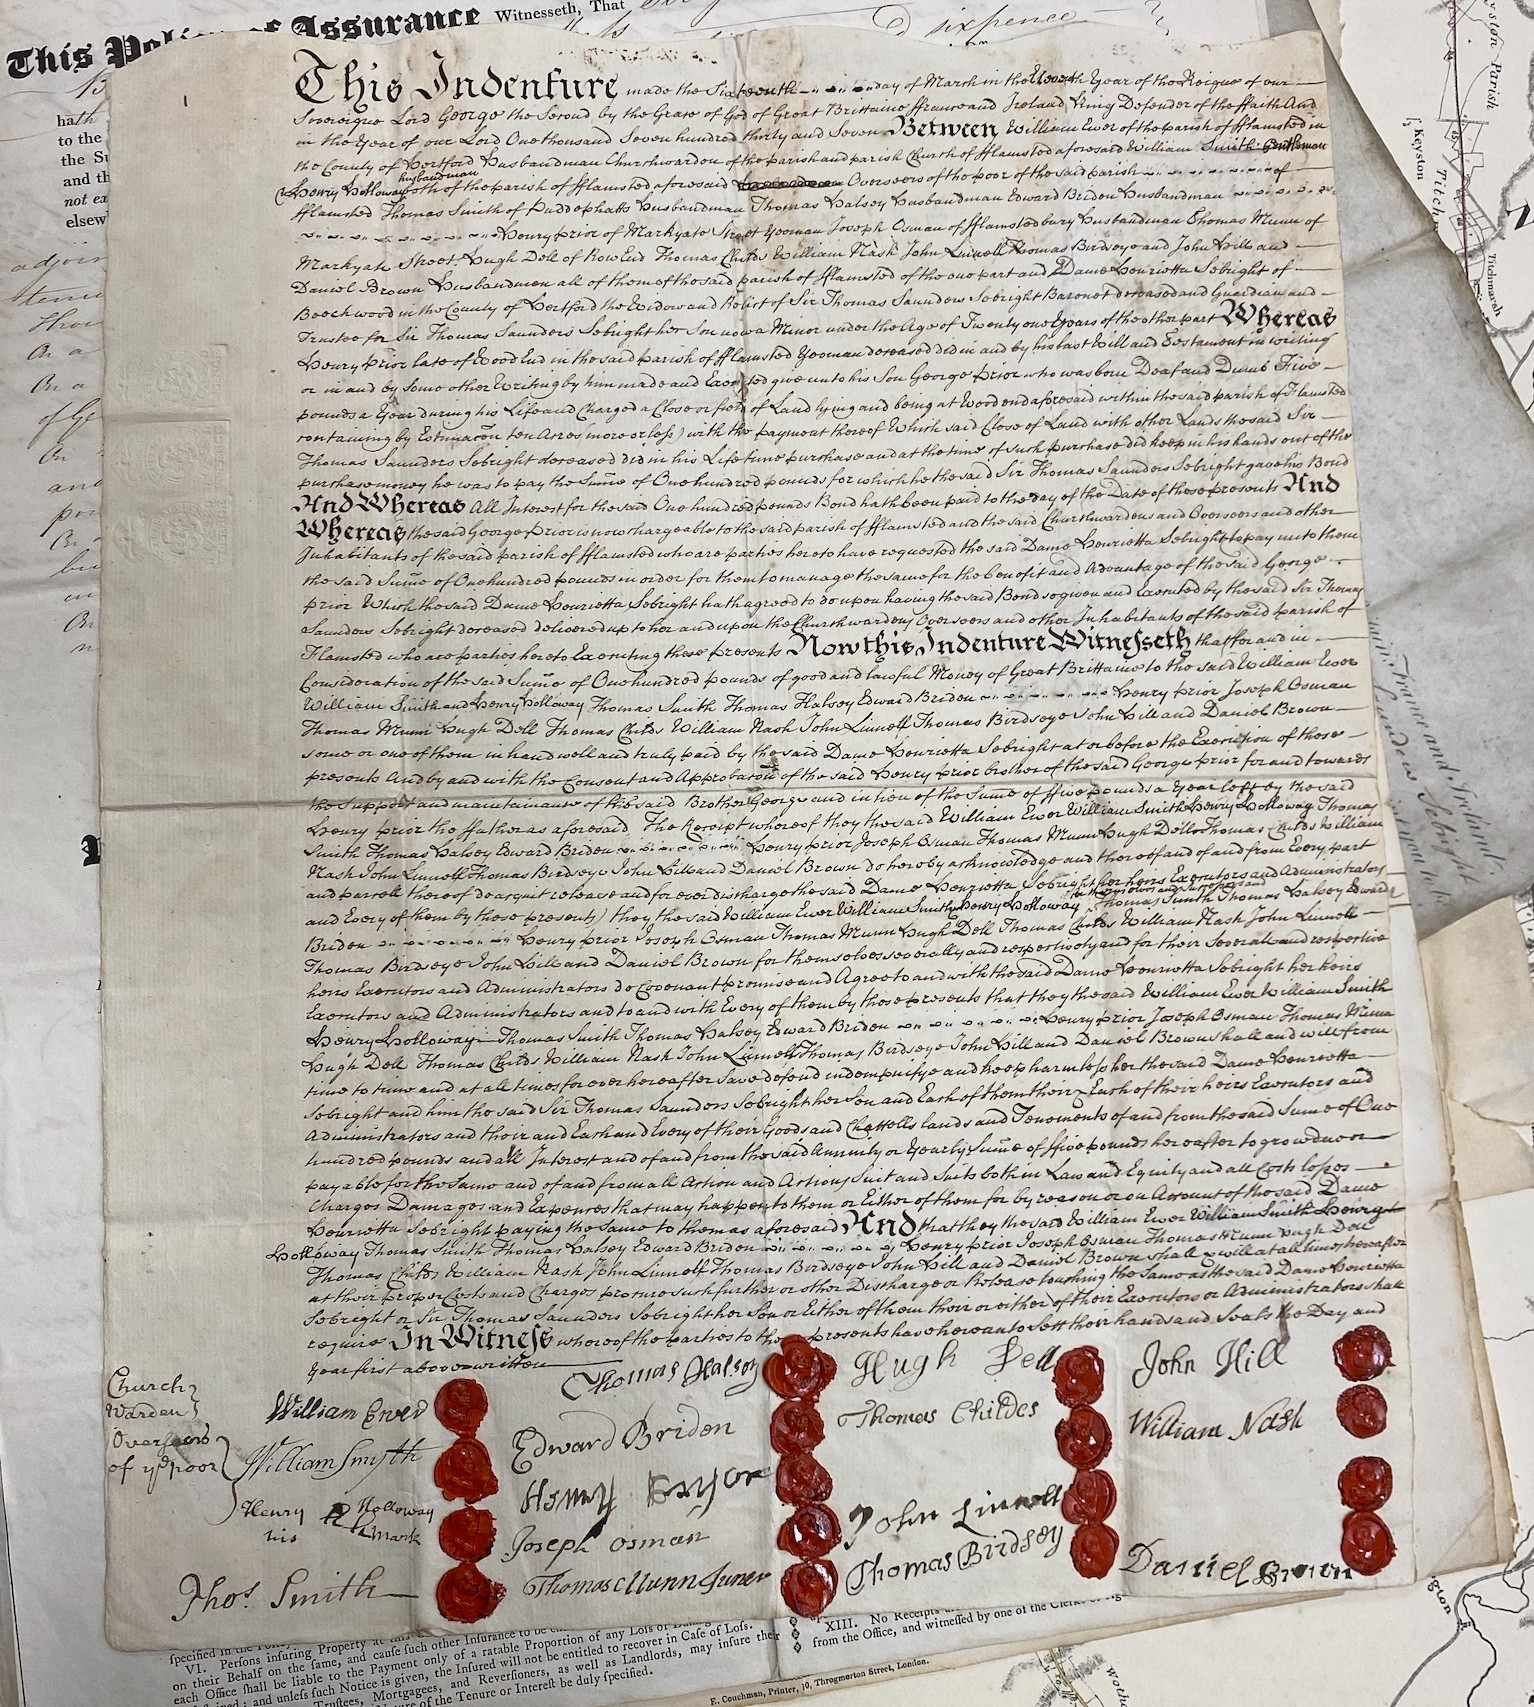 This Policy of Assurance Witnesseth, That
sixpence
hath
to the
the Su
and th
not ea
elsew
This Indenture made the Sixteenth day of March in the Eleventh Year of the Reigne of our
Sovereigne Lord George the Second by the Grace of God of Great Brittaine ffrance and Ireland King Defender of the ffaith And
in the Year of our Lord One thousand Seven hundred thirty and Seven Between William Ewer of the parish of fflamsted in
the County of Hertford Husbandman Churchwarden of the parish and parish Church of fflamsted aforesaid William Smith Gentleman
husbandman
& Henry Holloway both of the parish of fflamsted aforesaid Overseers of the poor of the said parish of
fflamsted Thomas Smith of Puddephatts Husbandman Thomas Halsey Husbandman Edward Briden Husbandman
Henry Prior of Markyate Street Yeoman Joseph Osman of fflamstedbury Husbandman Thomas Munn of
Markyate Street, Hugh Dell of Row End Thomas Childs William Nash John Linnell Thomas Birdseye and John Hill and
Daniel Brown Husbandmen all of them of the said parish of fflamsted of the one part and Dame Henrietta Sebright of
Beechwood in the County of Hertford the Widow and Relict of Sir Thomas Saunders Sebright Baronet deceased and Guardian and
Trustee for Sir Thomas Saunders Sebright her Son now a Minor under the Age of Twenty one Years of the other part Whereas
Henry Prior late of Wood End in the said parish of fflamsted Yeoman deceased did in and by his last Will and Testament in writing
or in and by some other Writing by him made and Executed give unto his Son George Prior who was born Deaf and Dumb Five
pounds a Year during his Life and Charged a Close or field of Land lying and being at Wood end aforesaid within the said parish of Flamsted
containing by Estimacon ten Acres (more or less) with the payment thereof Which said Close of Land with other Lands the said Sir
Thomas Saunders Sebright deceased did in his Life time purchase and at the time of such purchase did keep in his hands out of the
purchase money he was to pay the Sume of One hundred pounds for which he the said Sir Thomas Saunders Sebright gave his Bond
And Whereas All Interest for the said One hundred pounds Bond hath been paid to the day of the Date of these presents And
Whereas the said George Prior is now chargeable to the said parish of fflamsted and the said Churchwardens and Overseers and other
Inhabitants of the said parish of fflamsted who are parties hereto have requested the said Dame Henrietta Sebright to pay unto them
the said Sume of One hundred pounds in order for them to manage the same for the benefit and Advantage of the said George
Prior Which the said Dame Henrietta Sebright hath agreed to do upon having the said Bond so given and Executed by the said Sir Thomas
Saunders Sebright deceased delivered up to her and upon the Churchwardens Overseers and other Inhabitants of the said parish of
Flamsted who are parties hereto Executing these presents Now this Indenture Witnesseth that for and in
Consideration of the said Sume of One hundred pounds of good and lawful Money of Great Brittaine to the said William Ewer
William Smith and Henry Holloway Thomas Smith Thomas Halsey Edward Briden Henry Prior Joseph Osman
Thomas Munn Hugh Dell Thomas Childs William Nash John Linnell Thomas Birdseye John Hill and Daniel Brown
some or one of them in hand well and truly paid by the said Dame Henrietta Sebright at or before the Execution of these
presents And by and with the Consent and Approbacon of the said Henry Prior brother of the said George Prior for and towards
the Support and maintainance of the said Brother George and in lieu of the Sume of ffive pounds a Year left by the said
Henry Prior the ffather as aforesaid, The Receipt whereof they the said William Ewer William Smith Henry Holloway Thomas
Smith Thomas Halsey Edward Briden Henry Prior Joseph Osman Thomas Munn Hugh Dell Thomas Childs William
Nash John Linnell Thomas Birdseye John Hill and Daniel Brown do hereby acknowledge and thereof and of and from Every part
and parcell thereof do acquit release and for ever discharge the said Dame Henrietta Sebright her heirs Executors and Administrators
and Every of them by these presents) they the said William Ewer William Smith Henry Holloway Thomas Smith Thomas Halsey Edward
Briden Henry Prior Joseph Osman Thomas Munn Hugh Dell Thomas Childs William Nash John Linnell
Thomas Birdseye John Hill and Daniel Brown for themselves severally and respectively and for their Several and respective
heirs Executors and Administrators do Covenant promise and Agree to and with the said Dame Henrietta Sebright her heirs
Executors and Administrators and to and with Every of them by these presents that they the said William Ewer William Smith
Henry Holloway Thomas Smith Thomas Halsey Edward Briden Henry Prior Joseph Osman Thomas Munn
Hugh Dell Thomas Childs William Nash John Linnell Thomas Birdseye John Hill and Daniel Brown shall and will from
time to time and at all times for ever hereafter Save defend indempnifye and keep harmless her the said Dame Henrietta
Sebright and him the said Sir Thomas Saunders Sebright her Son and Each of them their Each of their heirs Executors and
Administrators and their and Each and Every of their Goods and Chattells Lands and Tenements of and from the said Sume of One
hundred pounds and all Interest and of and from the said Annuity or Yearly Sume of ffive pounds hereafter to grow due or
payable for the same and of and from all Action and Actions Suit and Suits both in Law and Equity and all Costs losses
Charges Damages and Expences that may happen to them or Either of them for by reason or on Account of the said Dame
Henrietta Sebright paying the Same to them as aforesaid And that they the said William Ewer William Smith Henry
Holloway Thomas Smith Thomas Halsey Edward Briden Henry Prior Joseph Osman Thomas Munn Hugh Dell
Thomas Childs William Nash John Linnell Thomas Birdseye John Hill and Daniel Brown shall & will at all times hereafter
at their proper Costs and Charges procure such further or other Discharge or Release touching the Same as the said Dame Henrietta
Sebright or Sir Thomas Saunders Sebright her Son or Either of them their or either of their Executors or Administrators shall
require In Witness whereof the parties to these presents have hereunto Sett their hands and Seals the Day and
Year first above written
Church
Warden
Overseers
of ye poor
William Ewer
William Smyth
Henry Holloway
his mark
Thos. Smith
Thomas Halsey
Edward Briden
Henry Pryor
Joseph Osman
Thomas Munn Juner
Hugh Dell
Thomas Childes
John Linnell
Thomas Birdsey
John Hill
William Nash
Daniel Brown
Keyston
Titchmarsh
VI. Persons insuring Property at
on their Behalf on the same, and cause such other Insurance to be
each Office shall be liable to the Payment only of a ratable Proportion of any Loss or Damage
and unless such Notice is given, the Insured will not be entitled to recover in Case of Loss.
Trustees, Mortgagees, and Reversioners, as well as Landlords, may insure their
of the Tenure or Interest be duly specified.
XIII. No Receipts
from the Office, and witnessed by one of the Clerks
E. Couchman, Printer, 10, Throgmorton Street, London.